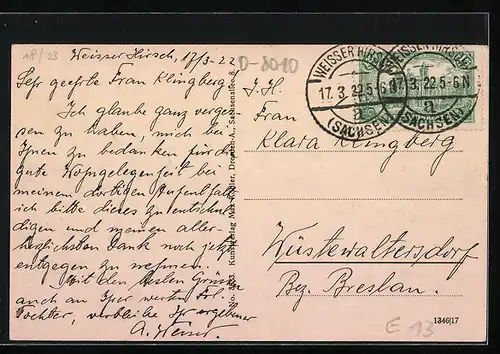 18/03
Weisser Hirsch, 17/3.22
D-8010
Sehr geehrte Frau Klingberg!
Ich glaube ganz verges-
sen zu haben, mich bei
Ihnen zu bedanken für die
gute Wohngelegenheit bei
meinem dortigen Aufenthalt
ich bitte dieses zu entschul-
digen und meinen aller-
herzlichsten Dank noch jetzt
entgegen zu nehmen.
Mit den besten Grüssen
auch an Ihr wertes Frl.
Tochter, verbleibe Ihr ergebener
A. Weiser.
No. 3793 Kunstverlag Max Köhler, Dresden-A., Sachsenallee
WEISSER HIRSCH
17.3.22.5-6N
a
(SACHSEN)
WEISSER HIRSCH
17.3.22.5-6N
a
(SACHSEN)
I. H.
Frau
Klara Klingberg
Wüstewaltersdorf
Bez. Breslau.
1346|17
E 13